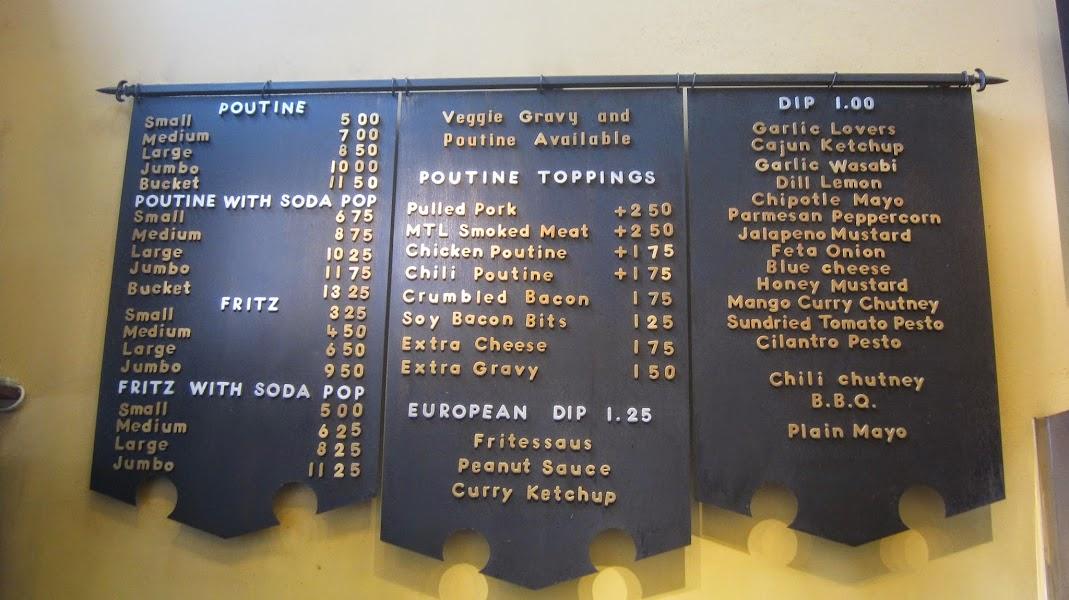 POUTINE
Small 5 00
Medium 7 00
Large 8 50
Jumbo 10 00
Bucket 11 50
POUTINE WITH SODA POP
Small 6 75
Medium 8 75
Large 10 25
Jumbo 11 75
Bucket 13 25
FRITZ
Small 3 25
Medium 4 50
Large 6 50
Jumbo 9 50
FRITZ WITH SODA POP
Small 5 00
Medium 6 25
Large 8 25
Jumbo 11 25
Veggie Gravy and
Poutine Available
POUTINE TOPPINGS
Pulled Pork +2 50
MTL Smoked Meat +2 50
Chicken Poutine +1 75
Chili Poutine +1 75
Crumbled Bacon 1 75
Soy Bacon Bits 1 25
Extra Cheese 1 75
Extra Gravy 1 50
EUROPEAN DIP 1.25
Fritessaus
Peanut Sauce
Curry Ketchup
DIP 1.00
Garlic Lovers
Cajun Ketchup
Garlic Wasabi
Dill Lemon
Chipotle Mayo
Parmesan Peppercorn
Jalapeno Mustard
Feta Onion
Blue cheese
Honey Mustard
Mango Curry Chutney
Sundried Tomato Pesto
Cilantro Pesto
Chili chutney
B.B.Q.
Plain Mayo